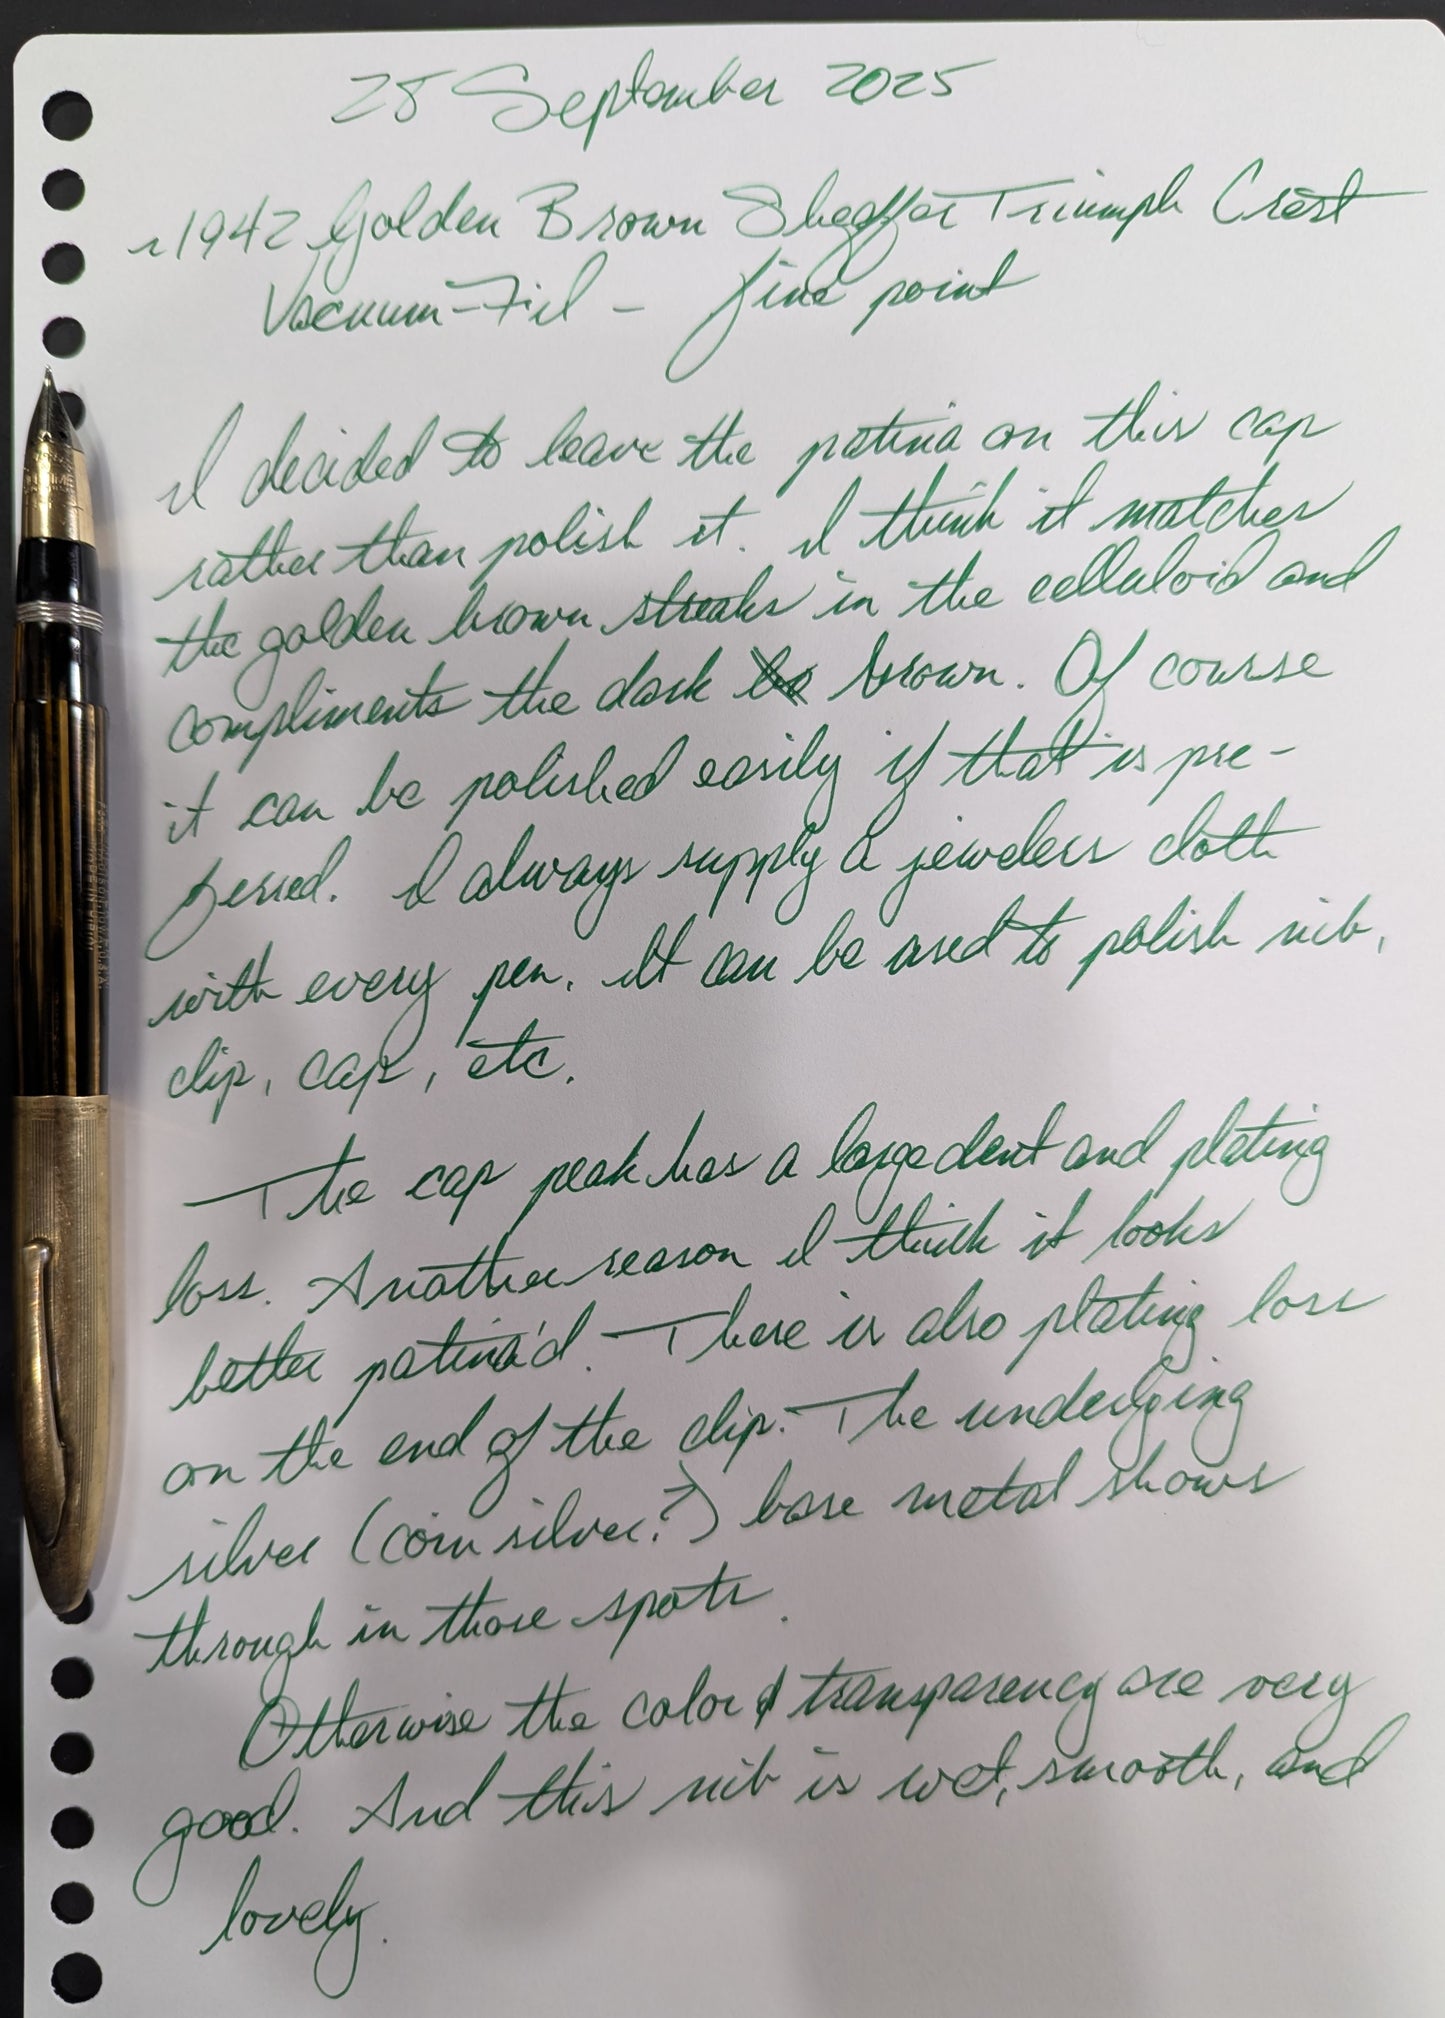 28 September 2025
~1942 Golden Brown Sheaffer Triumph Crest
Vacuum-Fil - fine point
I decided to leave the patina on this cap
rather than polish it. I think it matches
the golden brown streaks in the celluloid and
compliments the dark brown. Of course
it can be polished easily if that is pre-
ferred. I always supply a jewelers cloth
with every pen. It can be used to polish nib,
clip, cap, etc.
The cap peak has a large dent and plating
loss. Another reason I think it looks
better patina'd. There is also plating loss
on the end of the clip. The underlying
silver (coin silver?) base metal shows
through in those spots.
Otherwise the color & transparency are very
good. And this nib is wet, smooth, and
lovely.
MADE IN U.S.A.